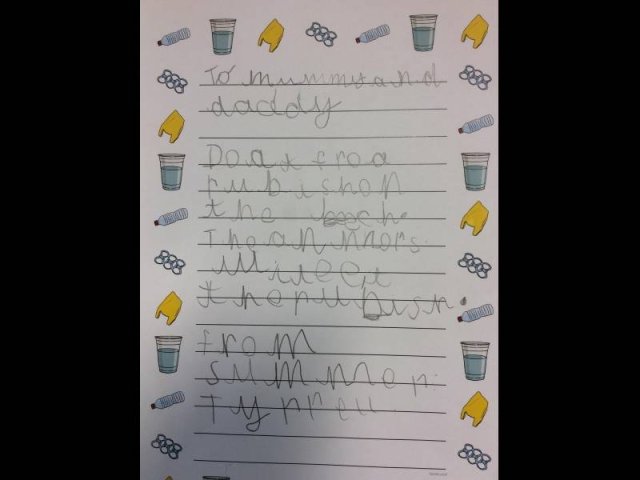 To mummy and
daddy
Doat froa
rubish on
the bech.
The annmors.
will eet
the rubish.
from
summer.
Tyrrell